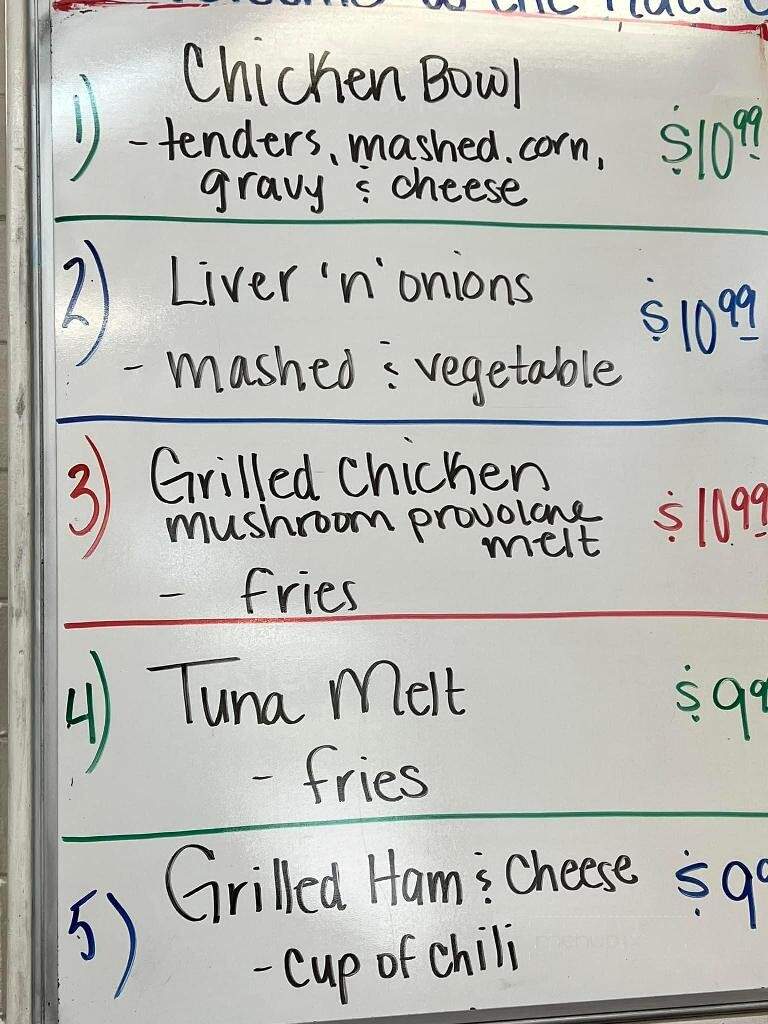 to the
1) Chicken Bowl
- tenders, mashed, corn, $10.99
gravy & cheese
2) Liver 'n' onions
$10.99
- mashed & vegetable
3) Grilled Chicken
mushroom provolone $10.99
melt
- fries
4) Tuna Melt $9
- fries
5) Grilled Ham & Cheese $9
- cup of chili